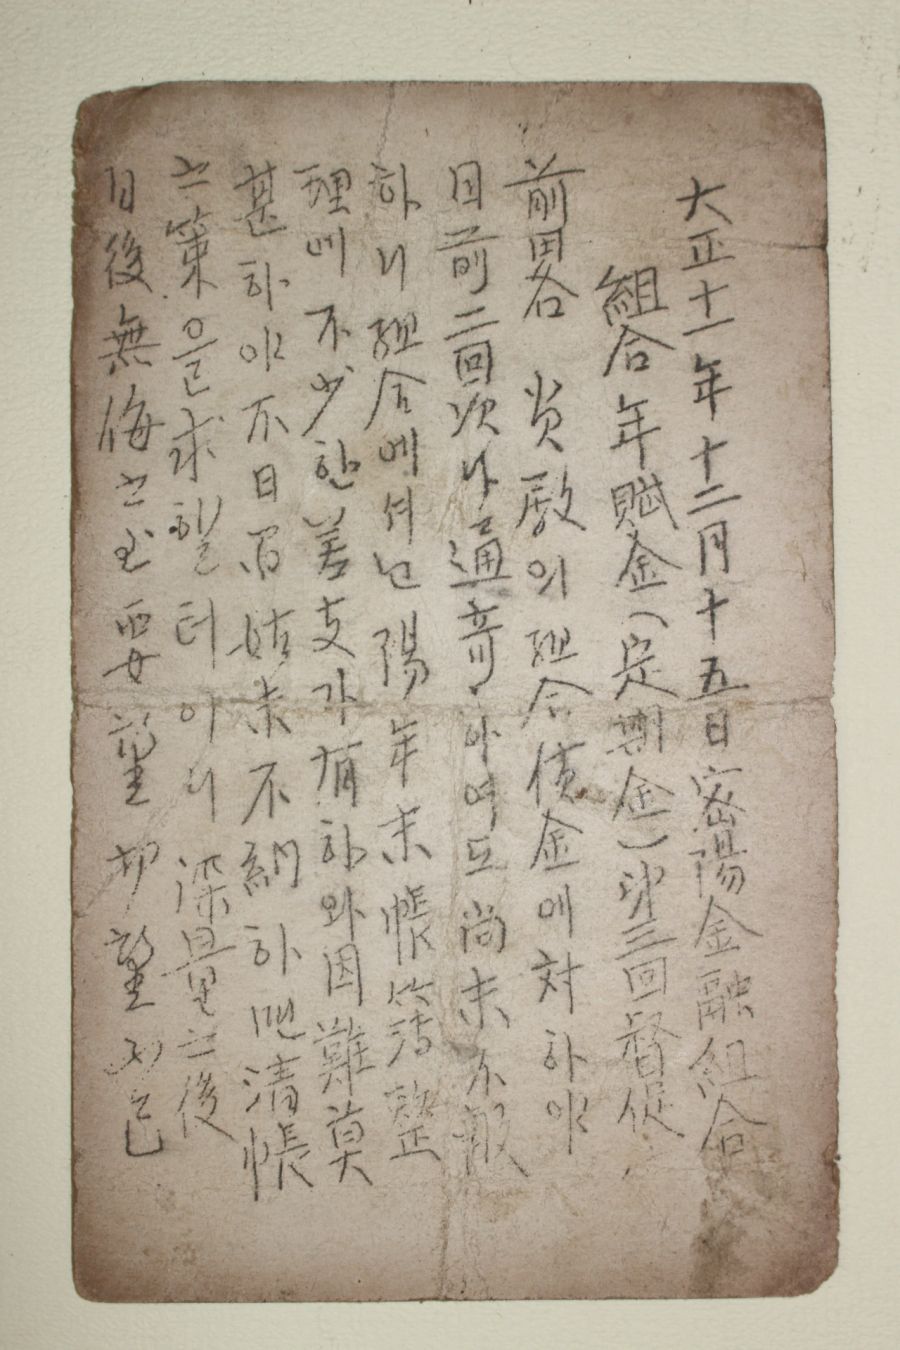 大正十一年十二月十五日密陽金融組合
組合年賦金(定期金)第三回督促
前畧 貴殿의組合債金에対하야
目前二回次나通奇하여도尚未不報
하니組合에셔난陽年末帳簿整
理에不少한差支가有하와困難莫
甚하야不日 姑未不納하면清帳
之策을求할터이니深量之後
日後無悔之地要望切望